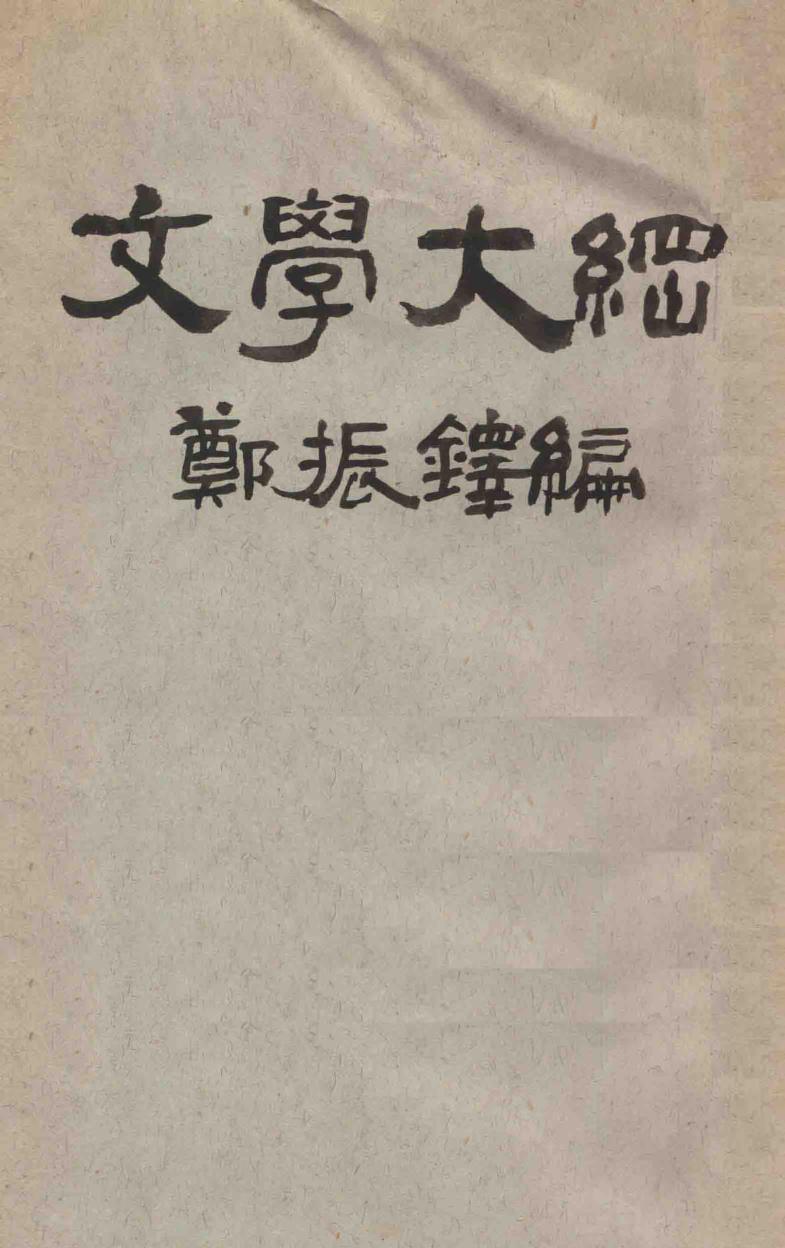 文學大綱
鄭振鐸編